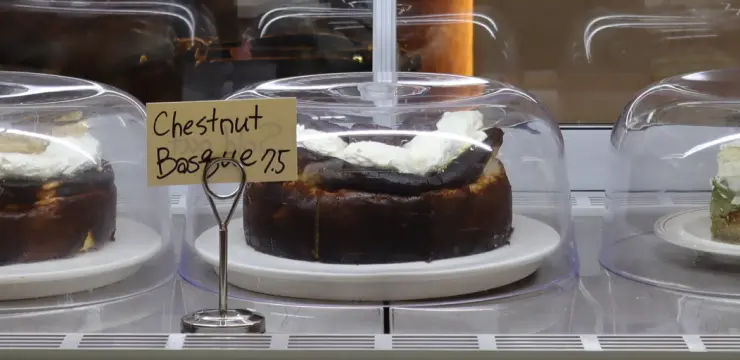 Chestnut
Basque 7.5